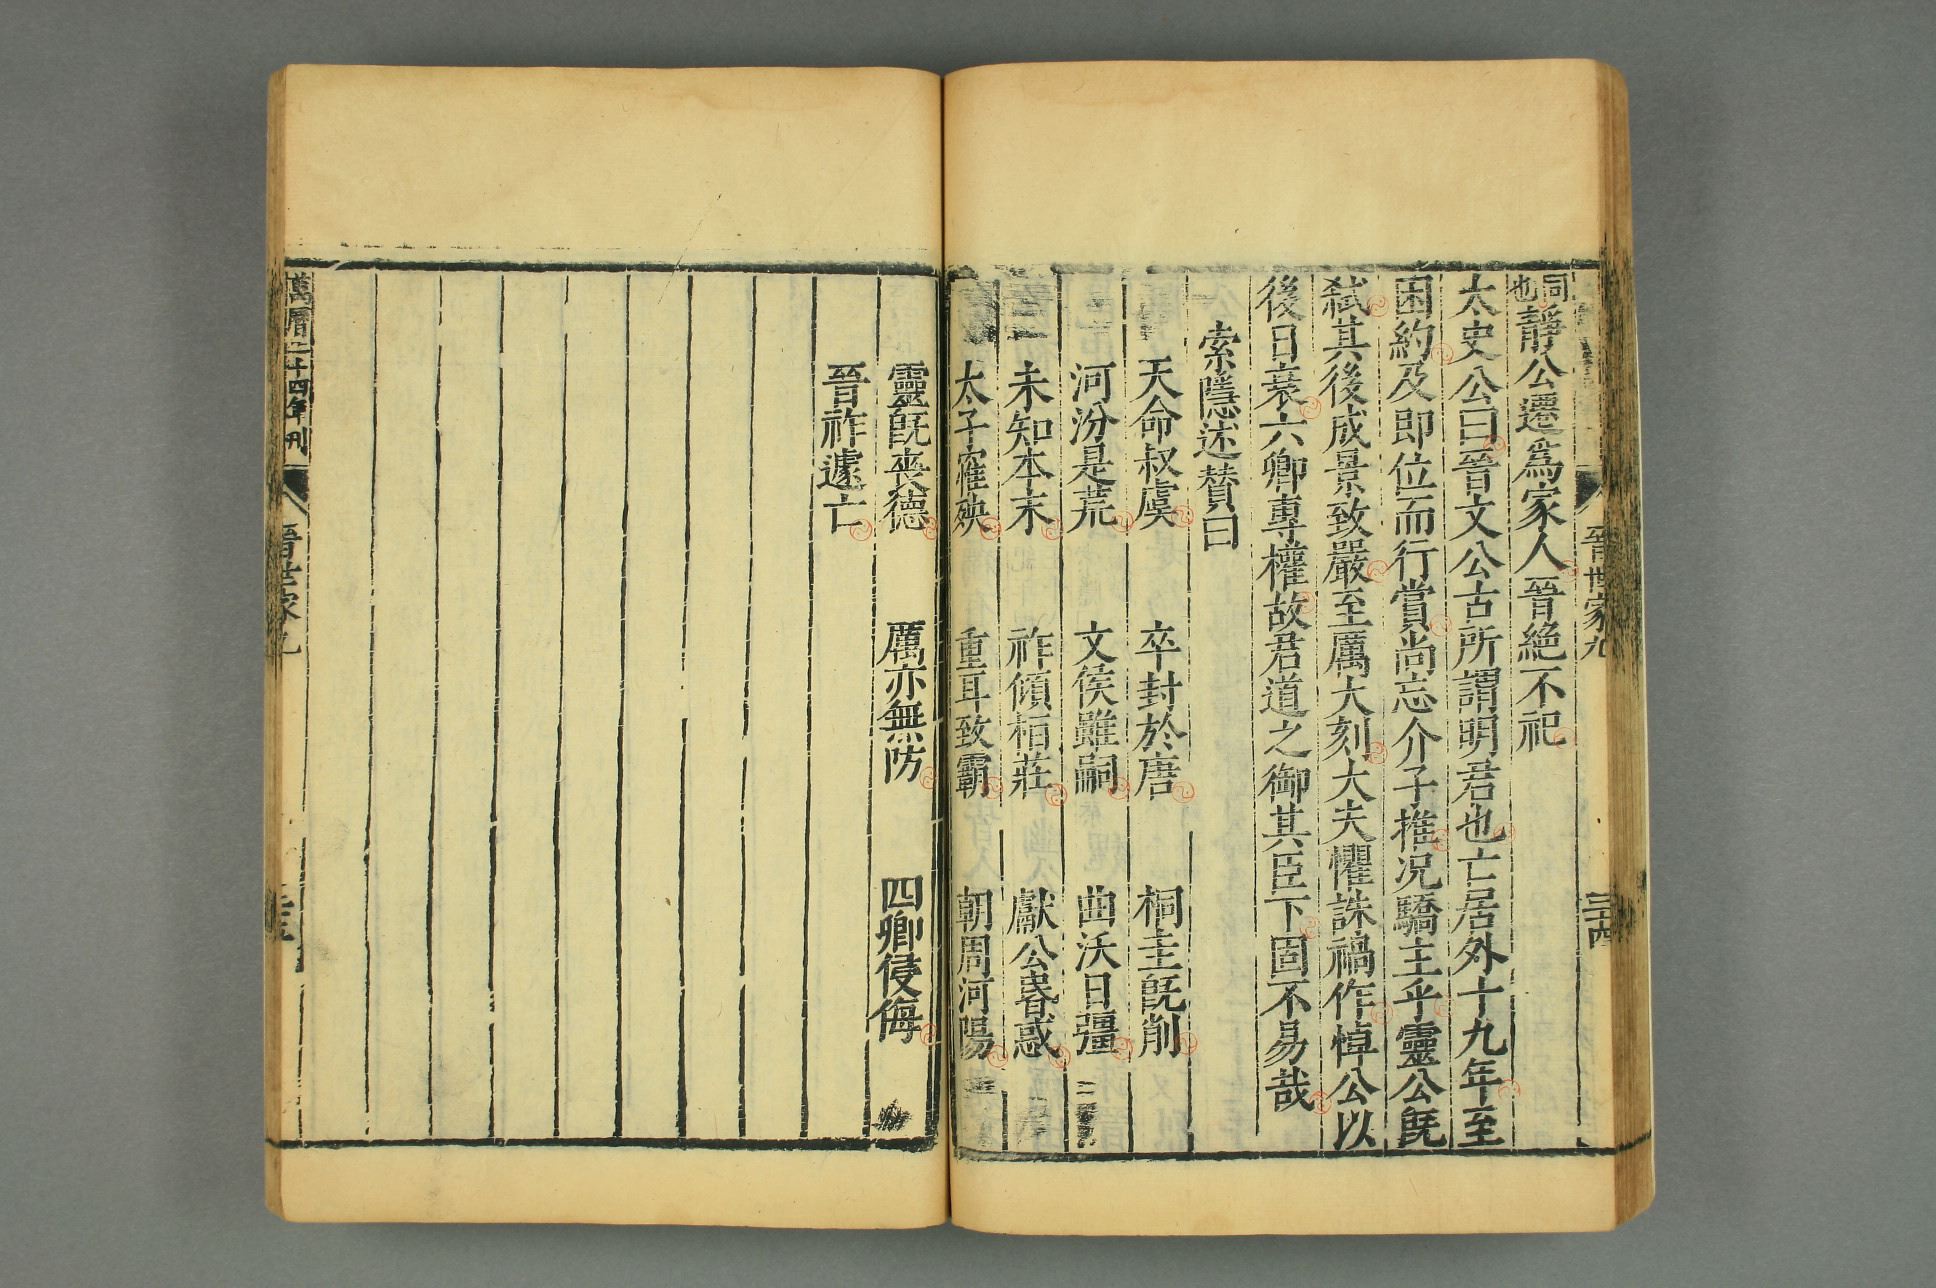 晉世家九
三十四
同也靜公遷爲家人晉絕不祀
太史公曰晉文公古所謂明君也亡居外十九年至
困約及即位而行賞尚忘介子推况驕主乎靈公旣
弑其後成景致嚴至厲大刻大夫懼誅禍作悼公以
後日衰六卿專權故君道之御其臣下固不易哉
索隱述贊曰
天命叔虞 卒封於唐 桐圭旣削
河汾是荒 文侯雖嗣 曲沃日疆
未知本末 祚傾栢莊 獻公昬惑
太子罹殃 重耳致霸 朝周河陽
靈旣喪德 厲亦無防 四卿侵侮
晉祚遽亡
萬曆二十四年刊
晉世家九